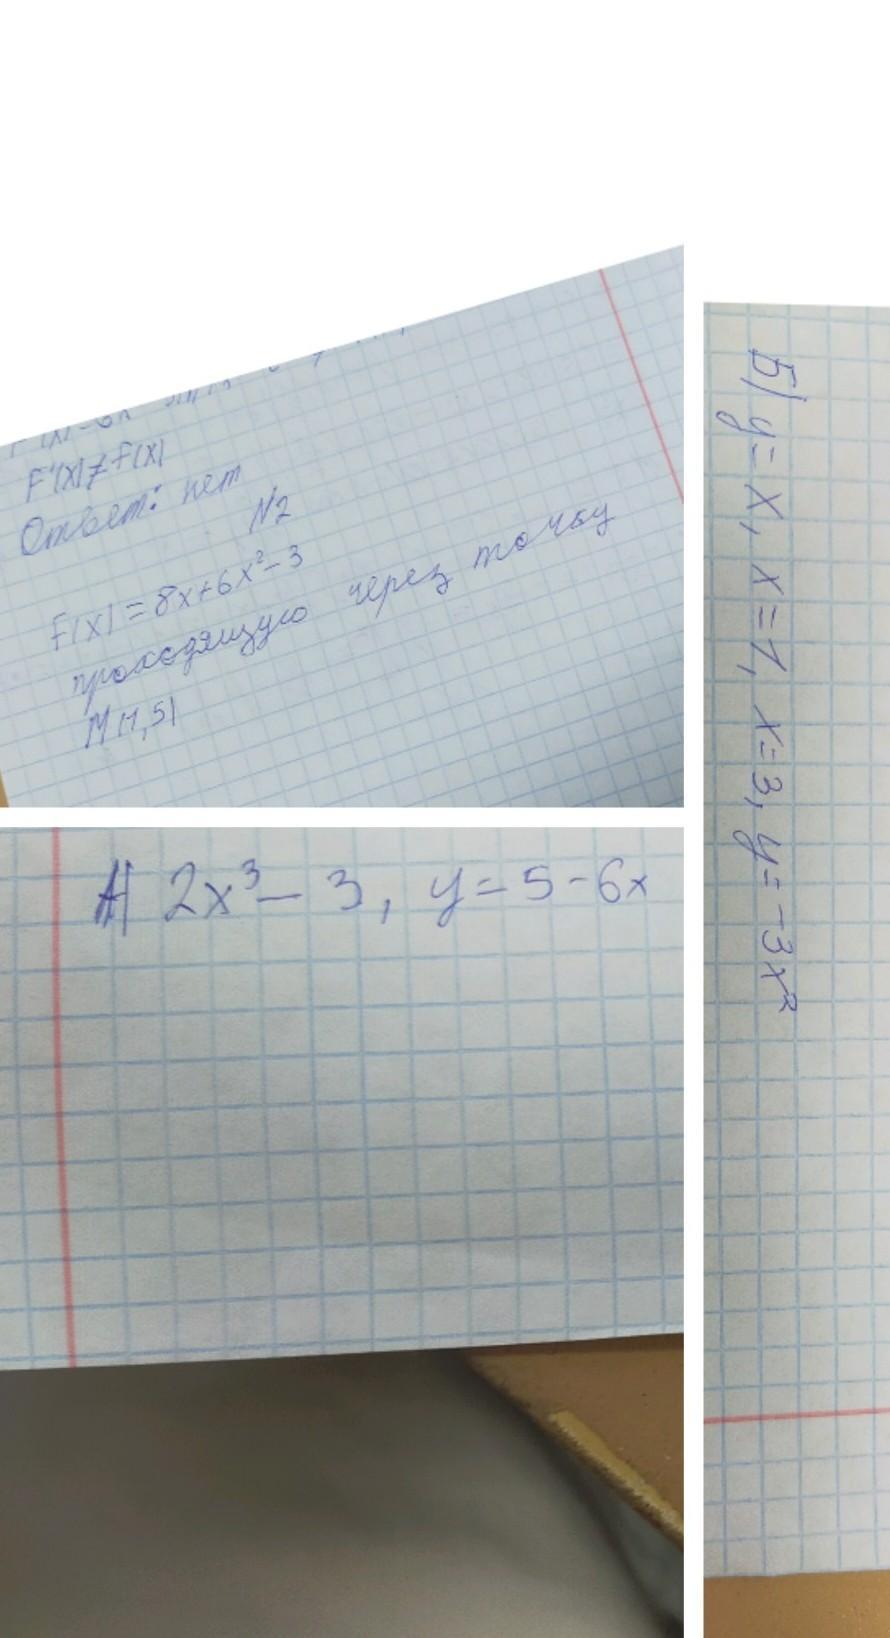 F'(x)≠f(x)
Ответ: нет
N2
F(x)=8x+6x²-3
проходящую через точку
M(1,5)
A) 2x³-3, y=5-6x
Б) y=x, x=1, x=3, y=-3x²